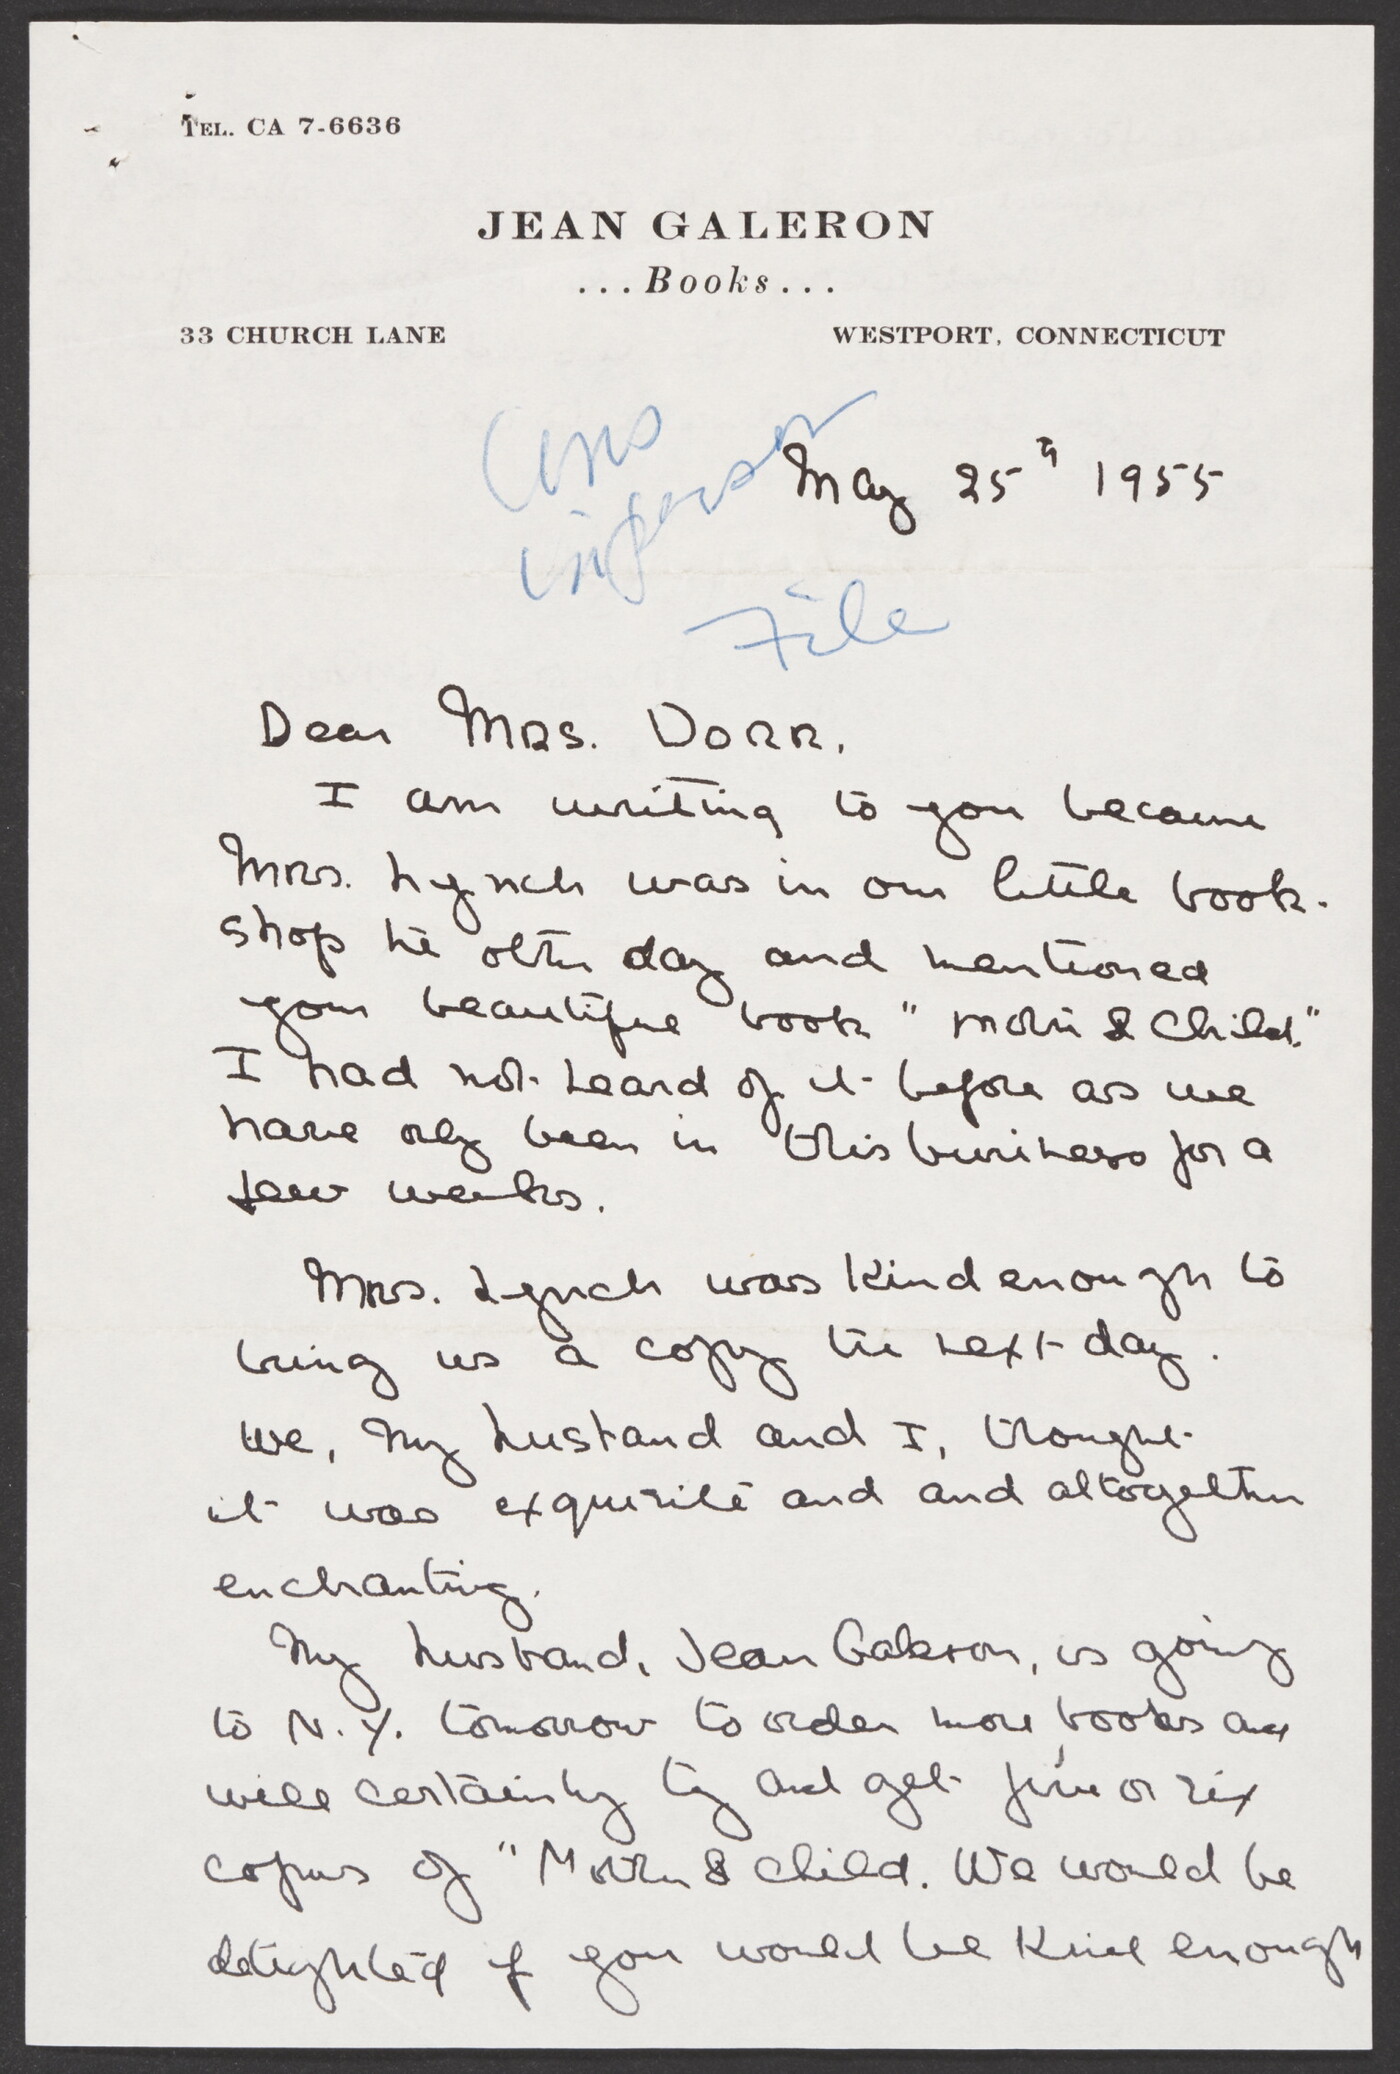 TEL. CA 7-6636
JEAN GALERON
...Books...
33 CHURCH LANE WESTPORT, CONNECTICUT
Ans
in person
May 25th 1955
File
Dear Mrs. Dorr,
I am writing to you because
Mrs. Lynch was in our little book-
shop the other day and mentioned
your beautiful book "Mother & Child."
I had not heard of it before as we
have only been in this business for a
few weeks.
Mrs. Lynch was kind enough to
bring us a copy the next day.
We, my husband and I, thought
it was exquisite and and altogether
enchanting.
My husband, Jean Galeron, is going
to N.Y. tomorrow to order more books and
will certainly try and get five or six
copies of "Mother & Child. We would be
delighted if you would be kind enough